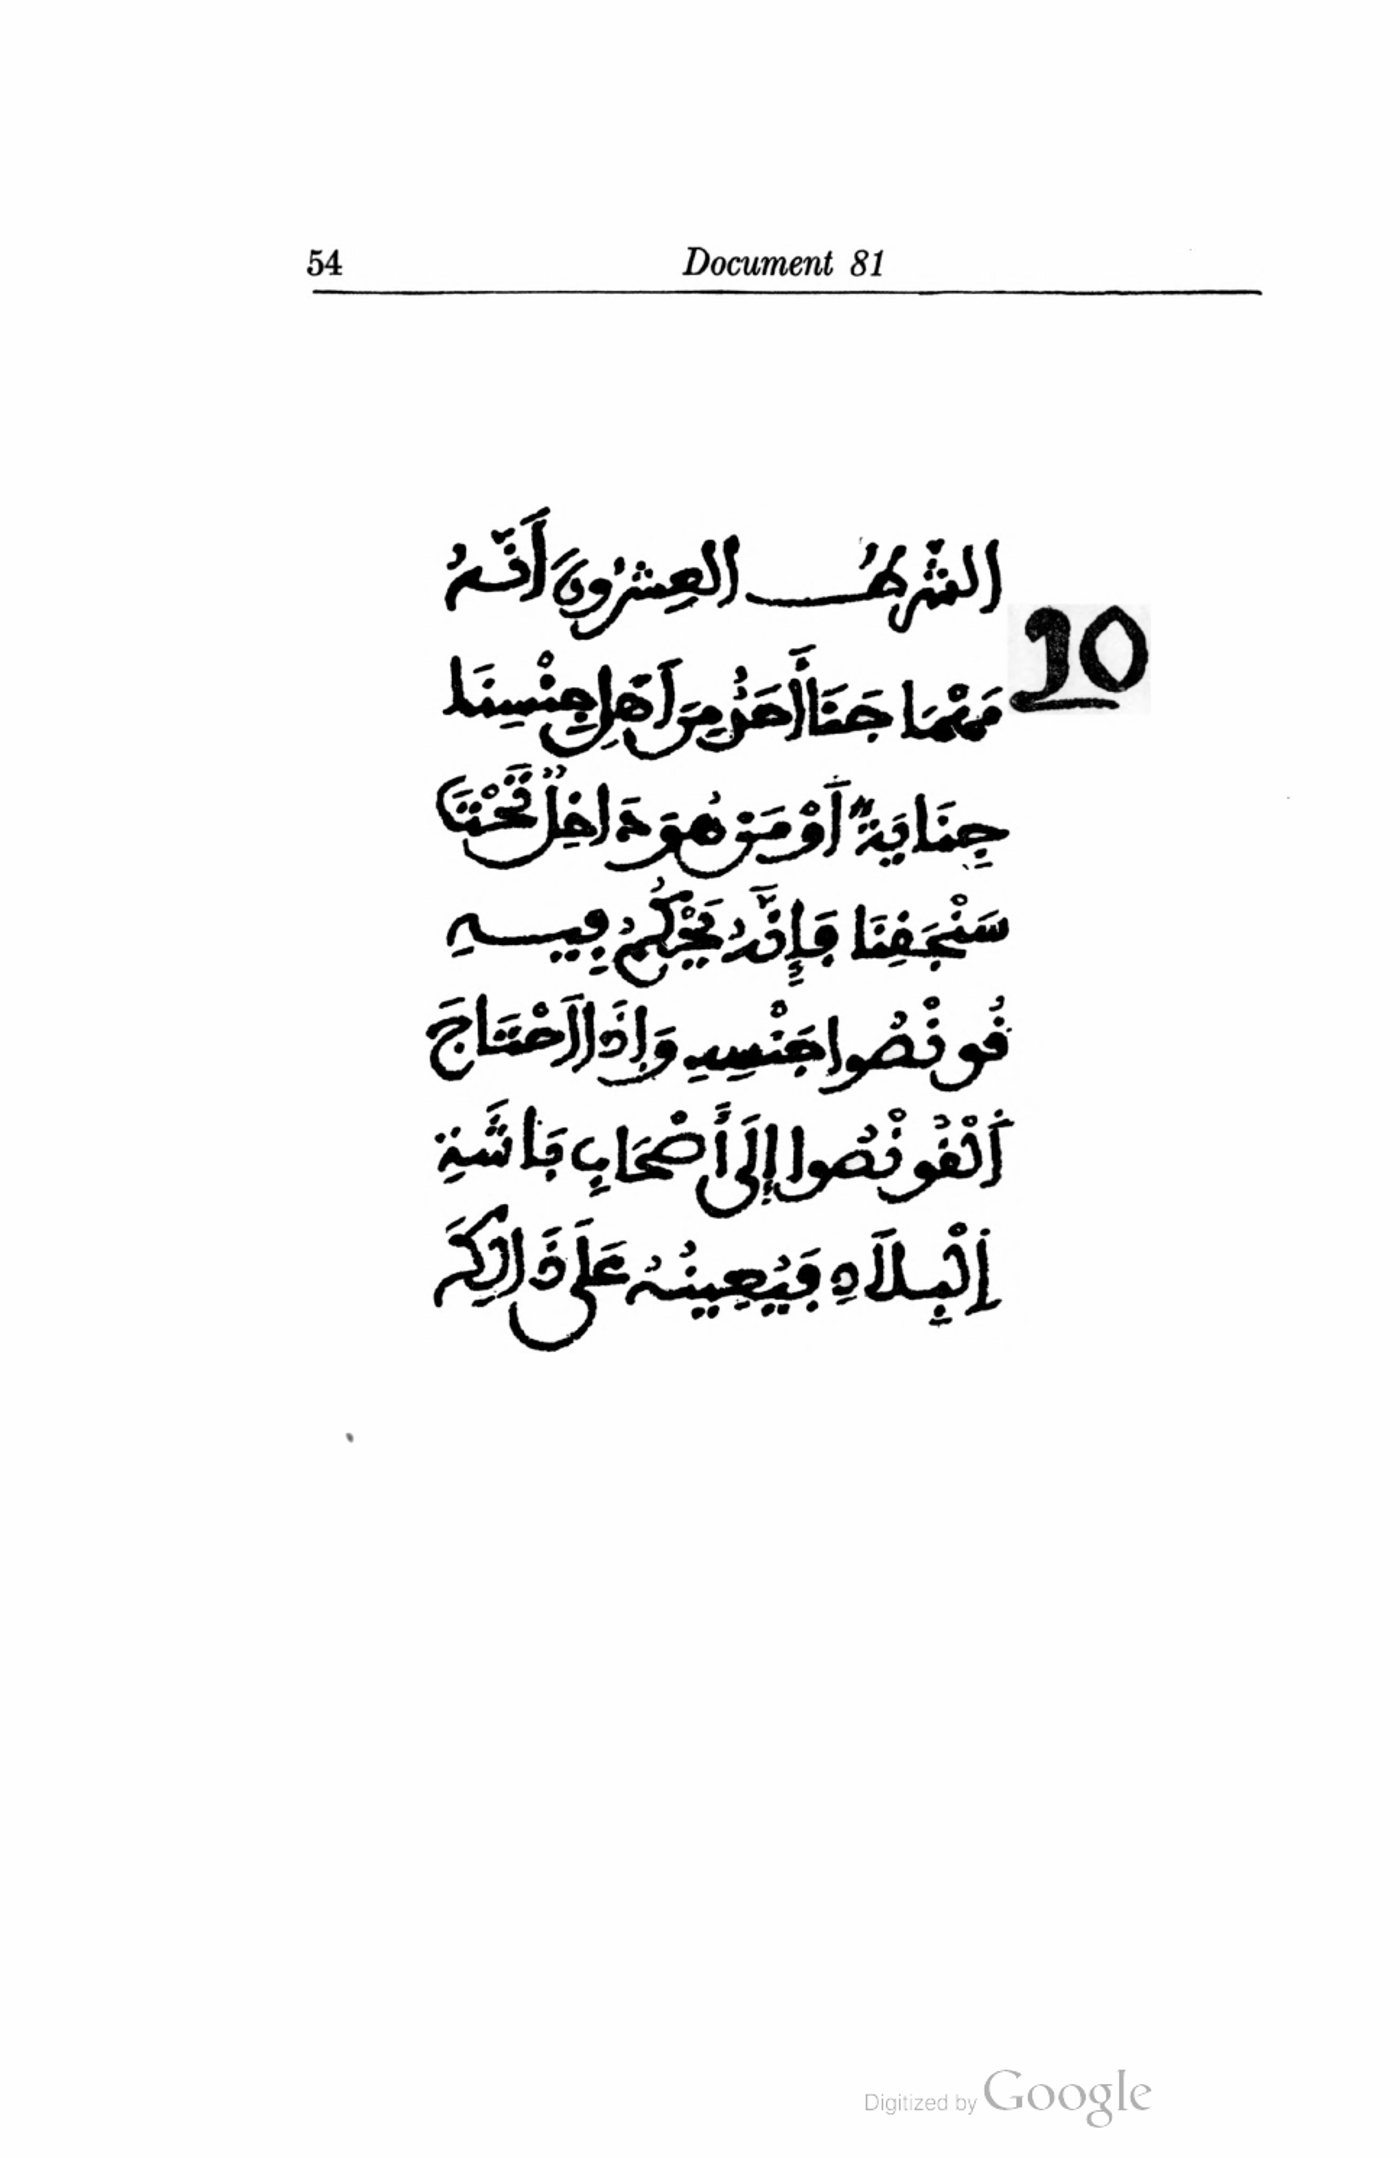 54 Document 81
الشَّرْطُ العِشْرُونَ أَنَّهُ
20
مَهْمَا جَنَا أَحَدٌ مِنَ اَهْلِ جِنْسِنَا
جِنَايَةً أَوْ مَنْ هُوَ دَاخِلٌ تَحْتَ
سَنْجَفِنَا فَإِنَّهُ يَحْكُمُ فِيهِ
قُونْصُوا جَنْسِهِ وَإِذَا اَحْتَاجَ
اَلْقُونْصُوا إِلَى أَصْحَابِ بَاشَةِ
اِلْبِلَادِ فَيُعِينُهُ عَلَى ذَالِكَ
Digitized by Google